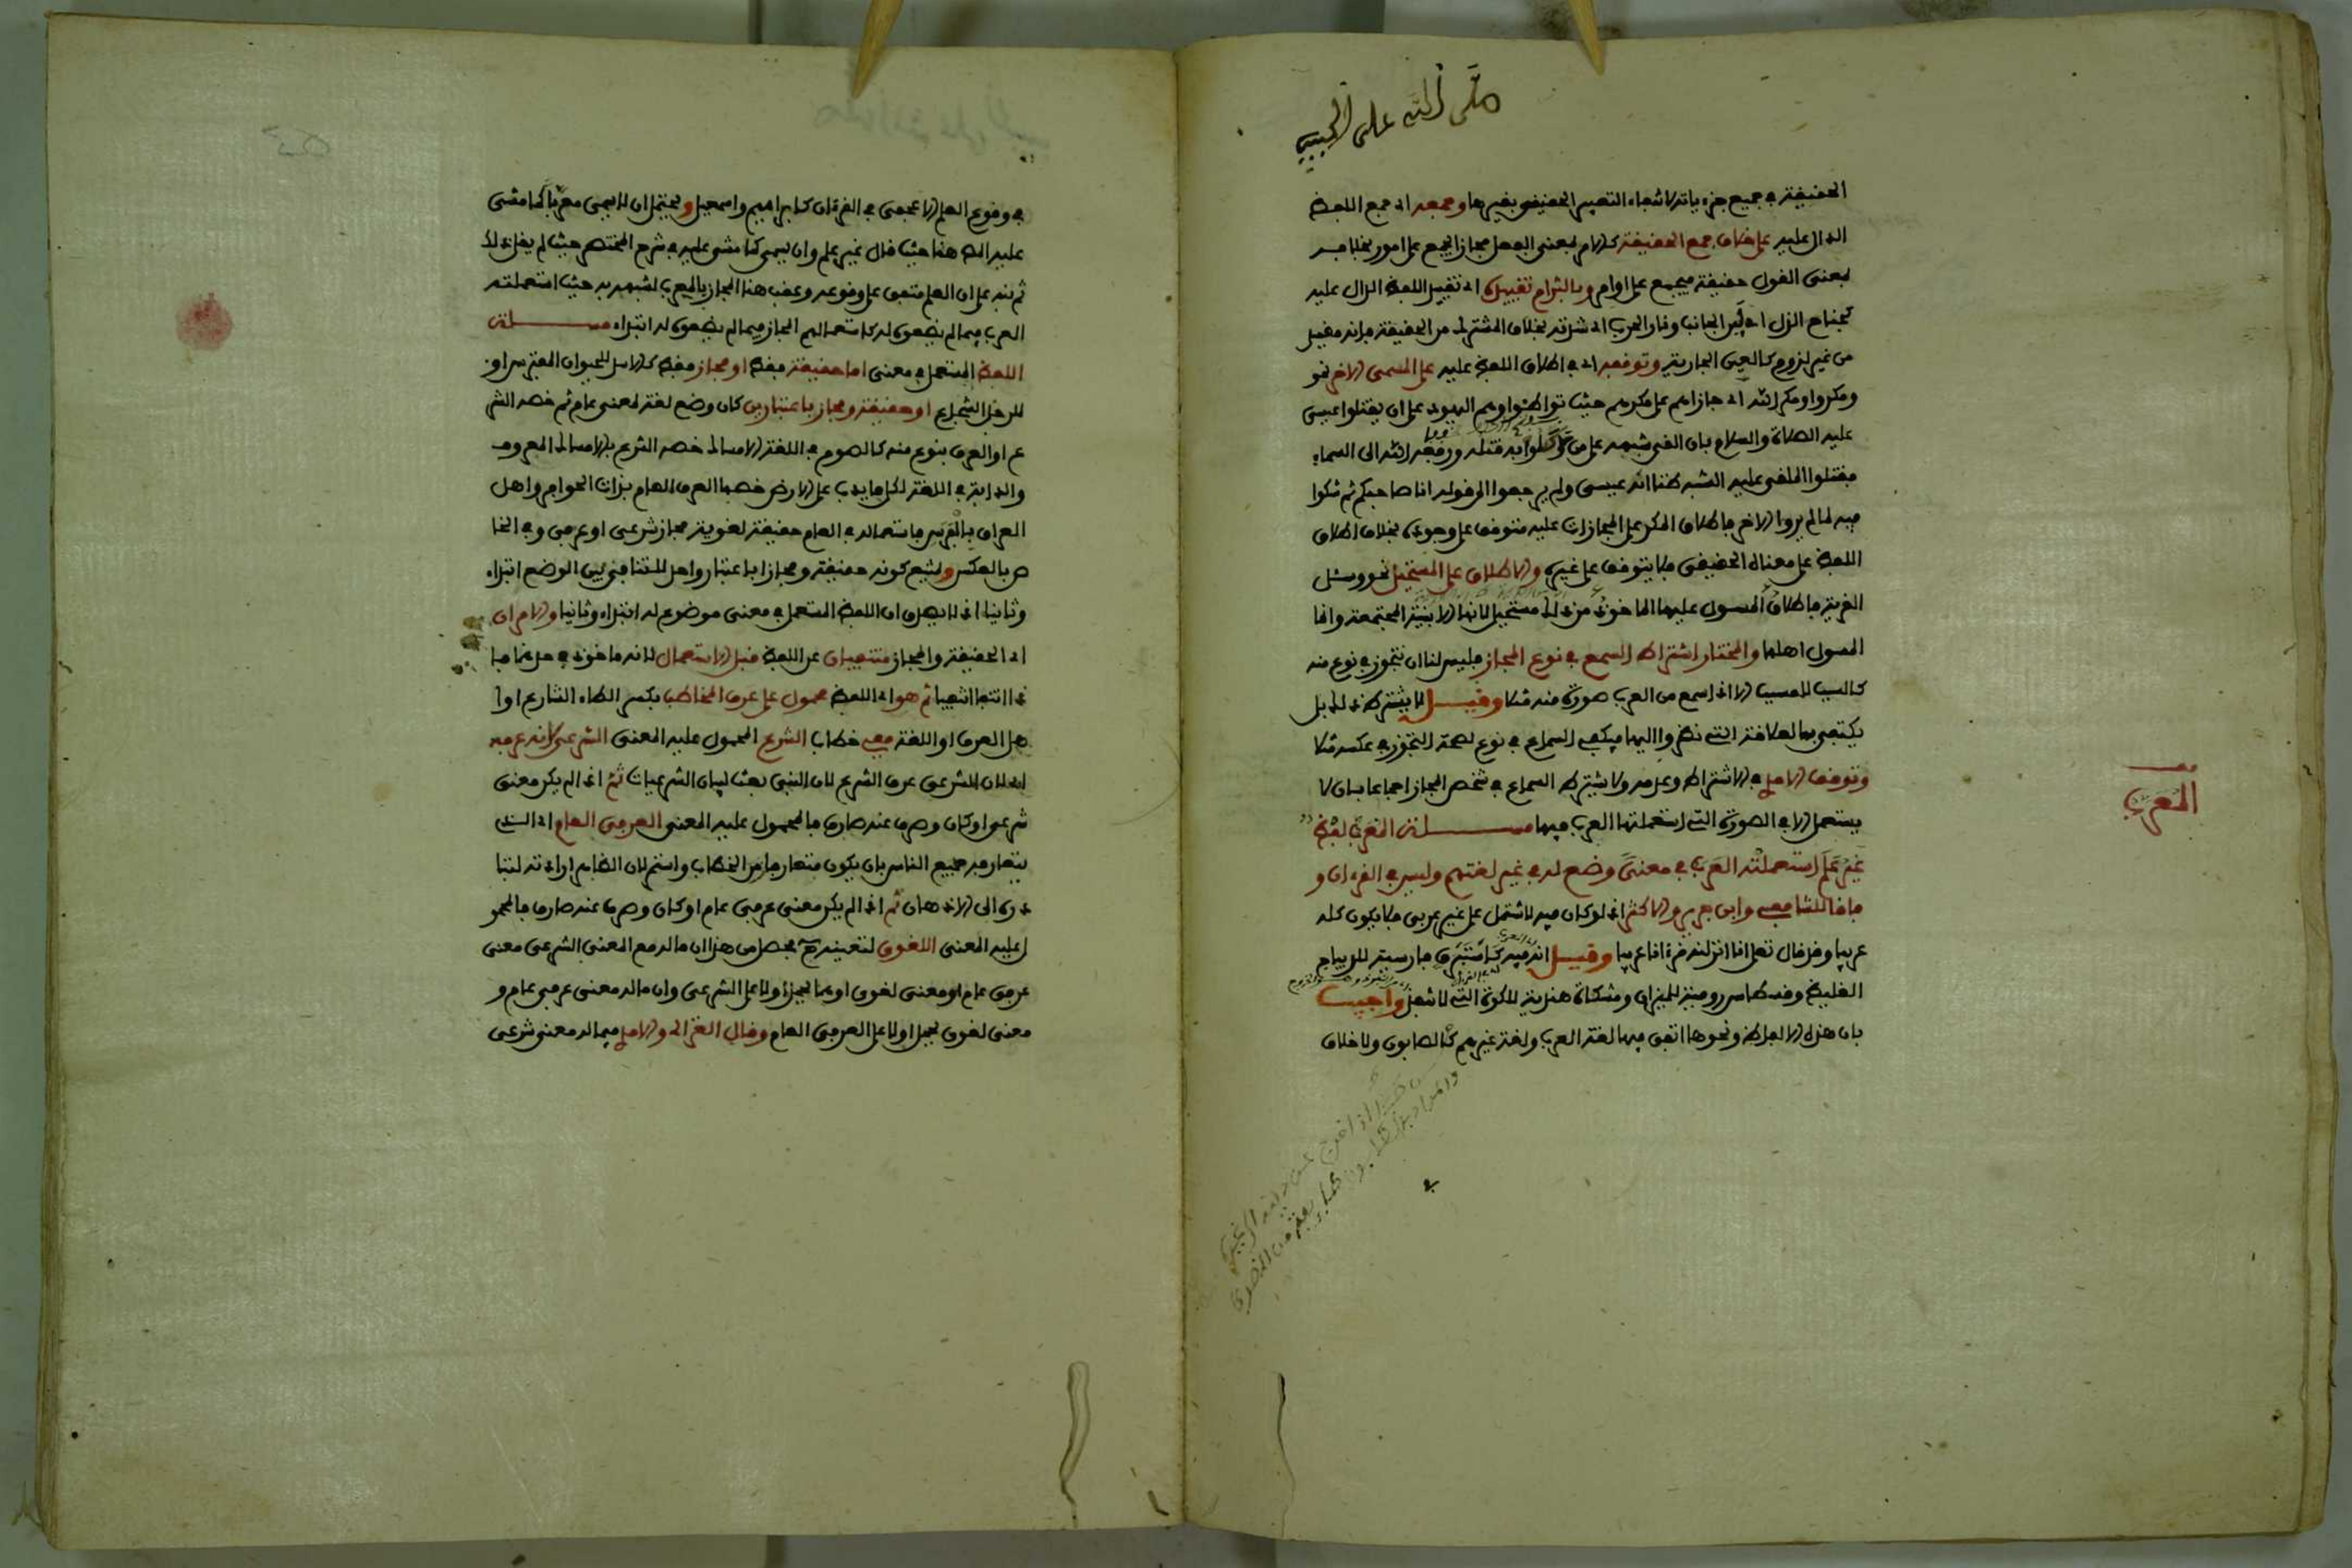 صلى الله على الحبيب
الحقيقة في جميع جزءياته لانتفاء التعبير الحقيقي بغيرها وجمعه اي جمع اللفظ
الدال عليه على خلاف جمع الحقيقة كالامر بمعنى الفعل مجازا يجمع على امور بخلافه
بمعنى القول حقيقة فيجمع على اوامر وبالتزام تقييده اي تقييد اللفظ الدال عليه
كجناح الذل اي لين الجانب ونار الحرب اي شدته بخلاف المشترك من الحقيقة فانه مقيد
من غير لزوم كالعين الجارية وتوقفه اي في اطلاق اللفظ عليه على المسمى الاخر نحو
ومكروا ومكر الله اي جازاهم على مكرهم حيث تواطئوا وهم اليهود على ان يقتلوا عيسى
عليه الصلاة والسلام بان القى شبهه على من وكلوا به قتله ورفعه الله الى السماء
فقتلوا الملقى عليه الشبه ظنا انه عيسى ولم يرجعوا الى قوله انا صاحبكم ثم شكوا
فيه لما لم يروا الاخر فاطلاق المكر على المجازات عليه متوقف على وجوده بخلاف اطلاق
اللفظ على معناه الحقيقي فلا يتوقف على غيره والاطلاق على المستحيل نحو وسئل
القرية فاطلاق المسول عليها الماخوذ من ذلك مستحيل لانها الابنية المجتمعة وانما
المسول اهلها والمختار اشتراط السمع في نوع المجاز فليس لنا ان نتجوز في نوع منه
كالسبب للمسبب الا اذا سمع من العرب صورة منه مثلا وقيل لا يشترط ذلك بل
يكتفى بالعلاقة التي نظروا اليها فيكفي السماع في نوع لصحة التجوز في عكسه مثلا
وتوقف الامدي في الاشتراط وعدمه ولا يشترط السماع في شخص المجاز اجماعا بان لا
يستعمل الا في الصورة التي استعملتها العرب فيها مسئلة المعرب لفظ
المعرب
غير علم استعملته العرب في معنى وضع له في غير لغتهم وليس في القرءان و
فاقا للشافعي وابن جرير والاكثر اذ لو كان فيه لاشتمل على غير عربي فلا يكون كله
عربيا وقد قال تعلى انا انزلنه قرءانا عربيا وقيل انه فيه كاستبرق فارسية للديباج
الغليظ وقسطاس رومية للميزان ومشكاة هندية للكوة التي لا تنفذ واجيب
بان هذه الالفاظ ونحوها اتفق فيها لغة العرب ولغة غيرهم كالصابون ولا خلاف
في وقوع العلم الاعجمي في القرءان كابراهيم واسمعيل ويحتمل ان لا يسمى معربا كما مشى
عليه المص هنا حيث قال غير علم وان يسمى كما مشى عليه في شرح المختصر حيث لم يقل ذلك
ثم نبه على ان العلم متفق على وقوعه وعقب هذا المجاز بالمعرب لشبهه به حيث استعملته
العرب فيما لم يضعوه له كاستعمالهم المجاز فيما لم يضعوه له ابتداء مسئلة
اللفظ المستعمل في معنى اما حقيقة فقط او مجاز فقط كالاسد للحيوان المفترس او
للرجل الشجاع او حقيقة ومجاز باعتبارين كان وضع لغة لمعنى عام ثم خصه الشر
ع او العرف بنوع منه كالصوم في اللغة الامساك خصه الشرع بالامساك المعروف
والدابة في اللغة لكل ما يدب على الارض خصها العرف العام بذات الحوافر واهل
العراق بالفرس فاستعماله في العام حقيقة لغوية مجاز شرعي او عرفي وفي الخا
ص بالعكس ويمتنع كونه حقيقة ومجازا باعتبار واحد للتنافي بين الوضع ابتداء
وثانيا اذ لا يصدق ان اللفظ المستعمل في معنى موضوع له ابتداء وثانيا والامران
اي الحقيقة والمجاز منتفيان عن اللفظ قبل الاستعمال لانه ماخوذ في حدهما فا
ذا انتفا انتفيا ثم هو اي اللفظ محمول على عرف المخاطب بكسر الطاء الشارع او ا
هل العرف او اللغة ففي خطاب الشرع المحمول عليه المعنى الشرعي لانه عرفه
اي لان الشرعي عرف الشرع لان النبي بعث لبيان الشرعيات ثم اذا لم يكن معنى
شرعي او كان وصرف عنه صارف فالمحمول عليه المعنى العرفي العام اي الذي
يتعارفه جميع الناس بان يكون متعارفا زمن الخطاب واستمر لان الظاهر ارادته لتبا
دره الى الاذهان ثم اذا لم يكن معنى عرفي عام او كان وصرف عنه صارف فالمحمو
ل عليه المعنى اللغوي لتعينه ح فحصل من هذا ان ما له مع المعنى الشرعي معنى
عرفي عام او معنى لغوي او هما يحمل اولا على الشرعي وان ما له معنى عرفي عام و
معنى لغوي يحمل اولا على العرفي العام وقال الغزالي والامدي فيما له معنى شرعي